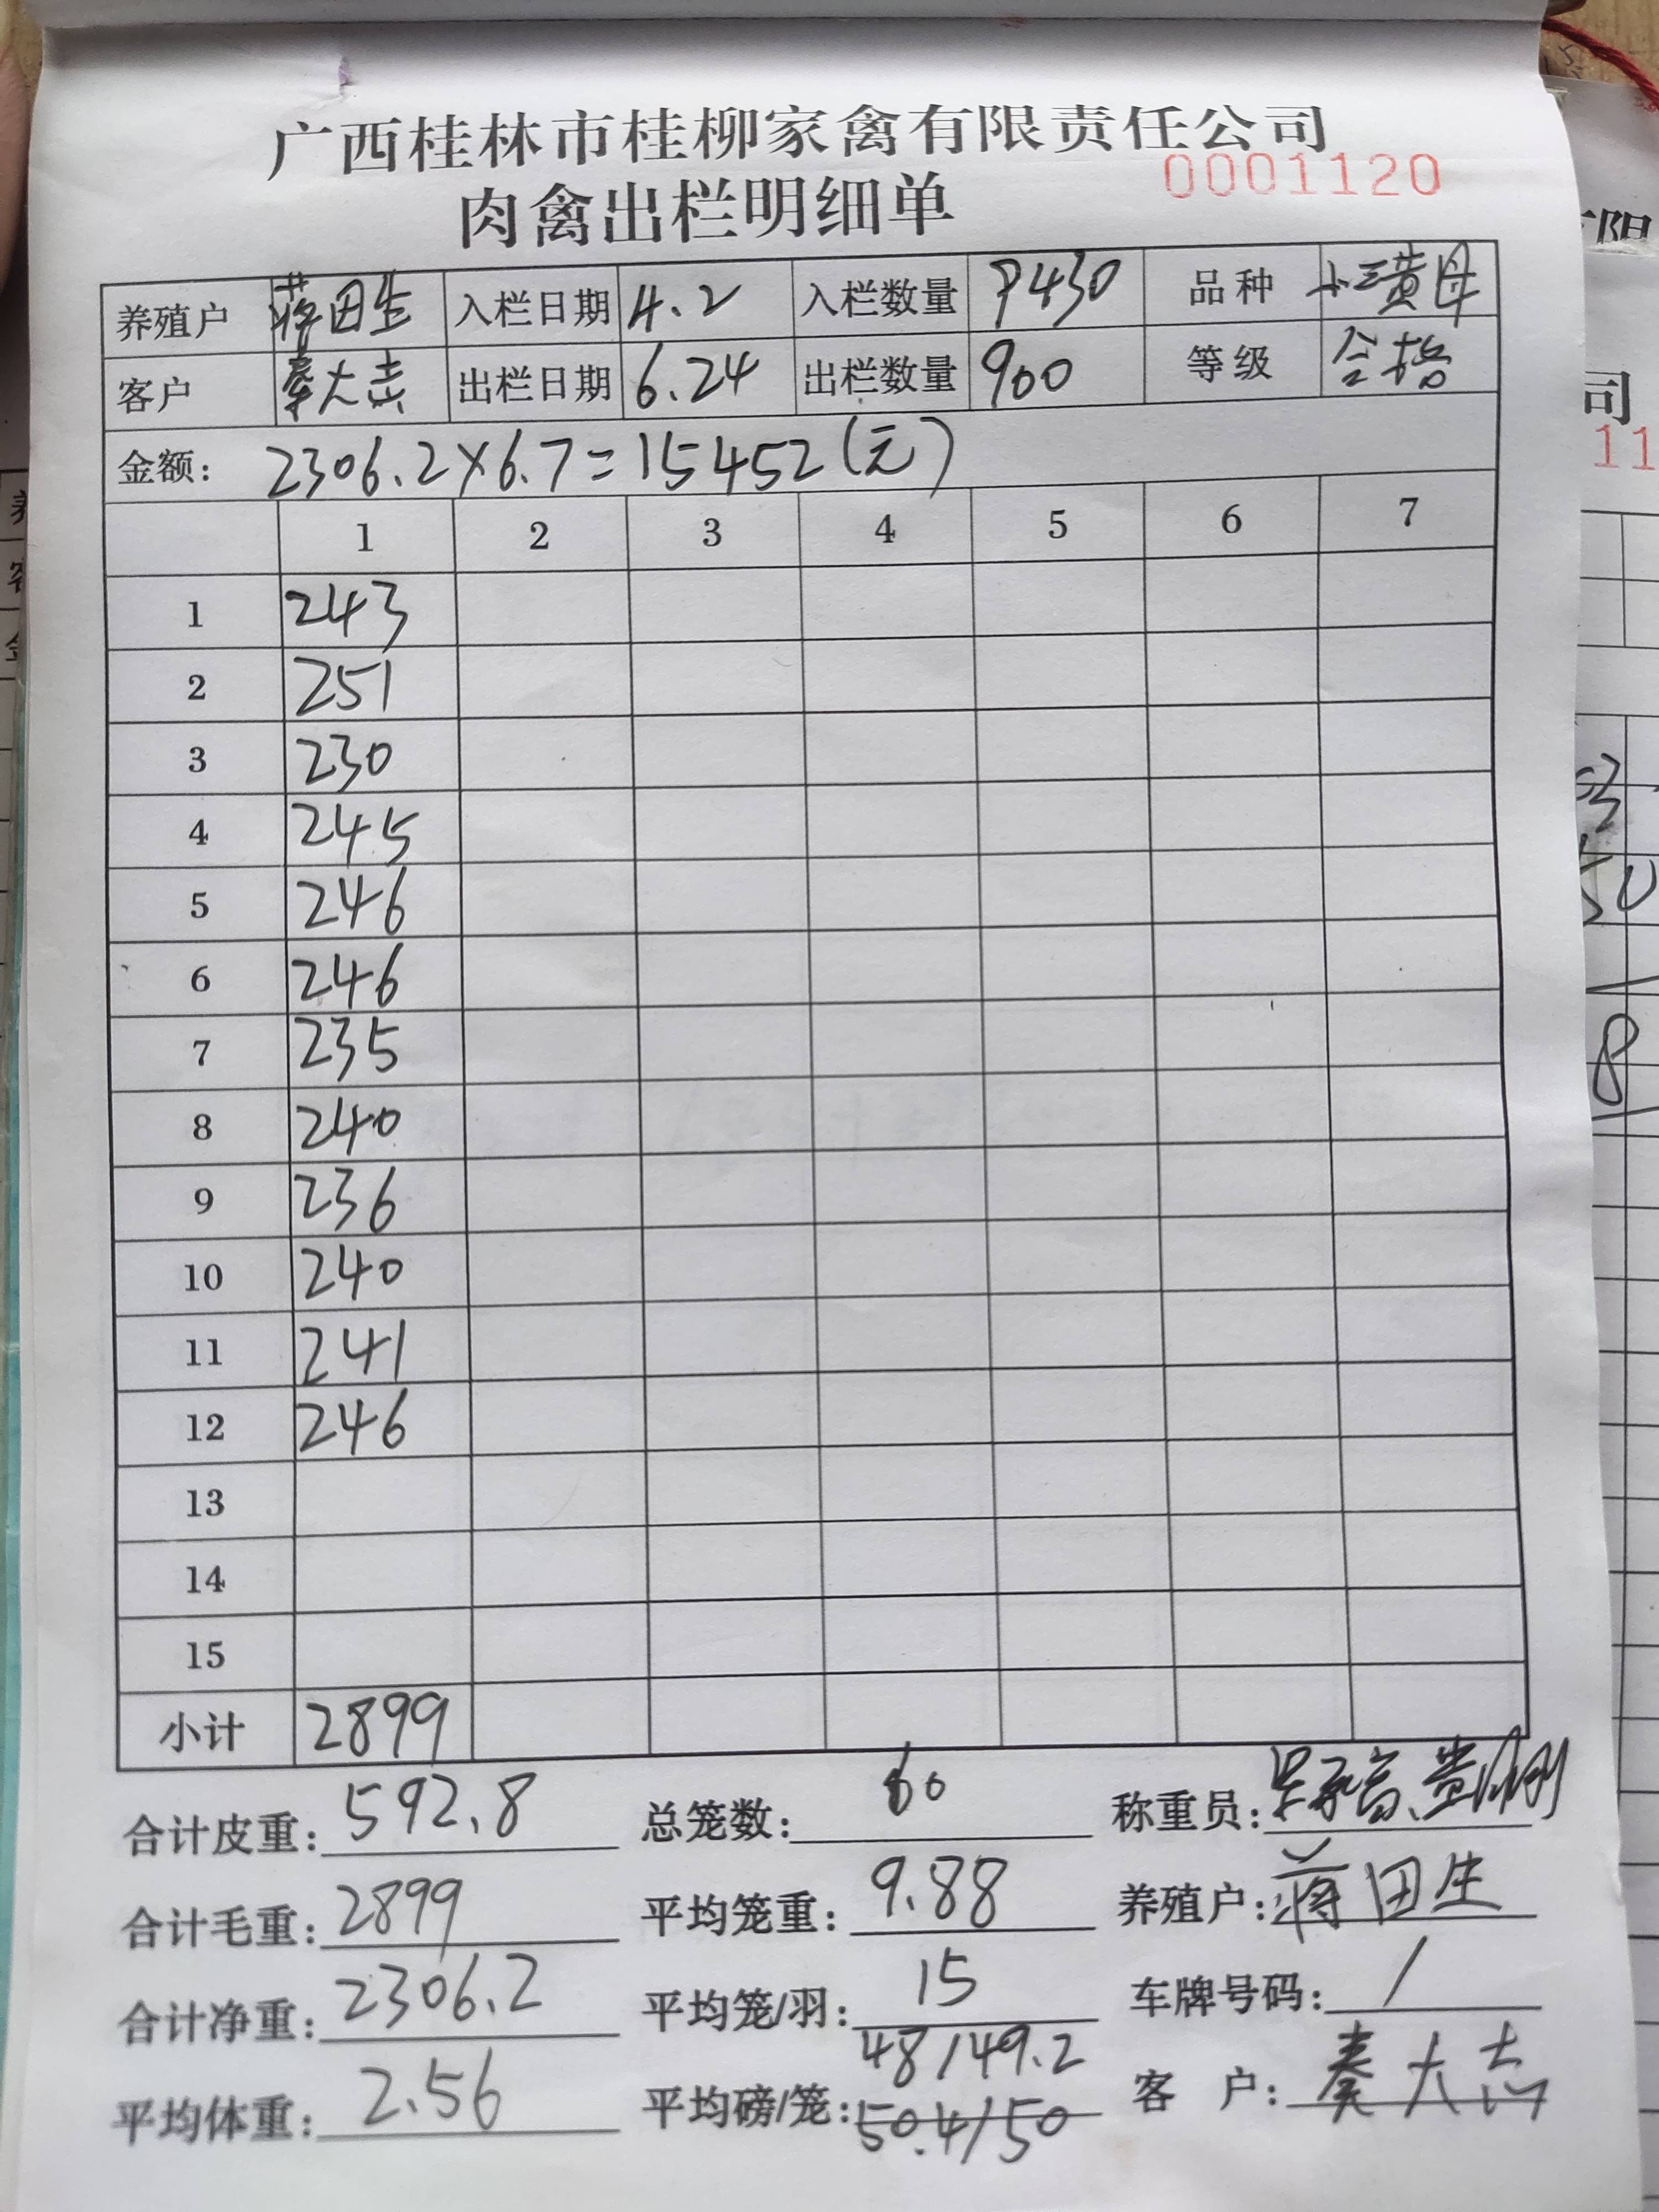 广西桂林市桂柳家禽有限责任公司
肉禽出栏明细单 0001120
养殖户 蒋田生 入栏日期 4.2 入栏数量 7430 品种 小三黄母
客户 秦大志 出栏日期 6.24 出栏数量 900 等级 合格
金额: 2306.2×6.7=15452(元)
1 2 3 4 5 6 7
1 243
2 251
3 230
4 245
5 246
6 246
7 235
8 240
9 236
10 240
11 241
12 246
13
14
15
小计 2899
合计皮重: 592.8 总笼数: 60 称重员:
合计毛重: 2899 平均笼重: 9.88 养殖户: 蒋田生
合计净重: 2306.2 平均笼/羽: 15 车牌号码: /
平均体重: 2.56 平均磅/笼: 48/49.2 50.4/50 客 户: 秦大志
有限
司
11
50
8